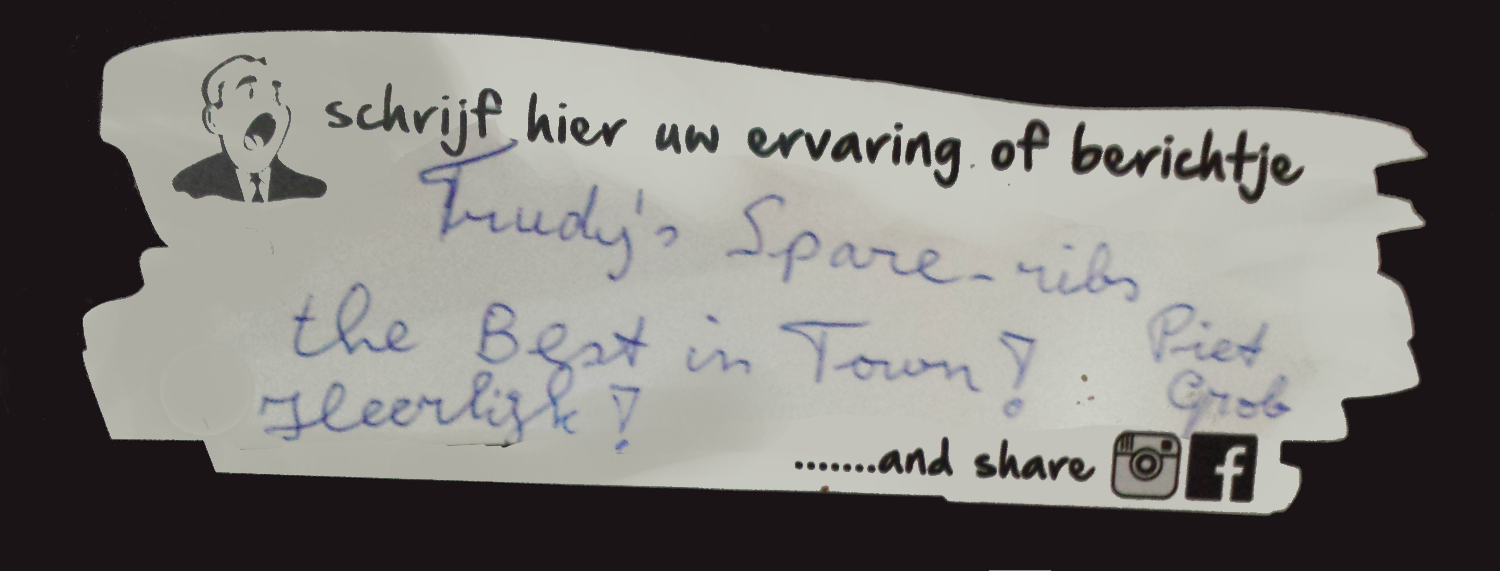 schrijf hier uw ervaring of berichtje
Trudy's Spare-ribs
the Best in Town!
Piet
Grob
Heerlijk!
.......and share